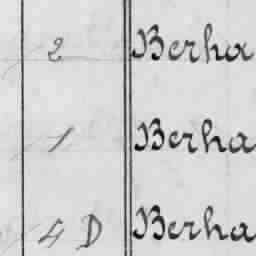 2 Berha
1 Berha
4 D Berha